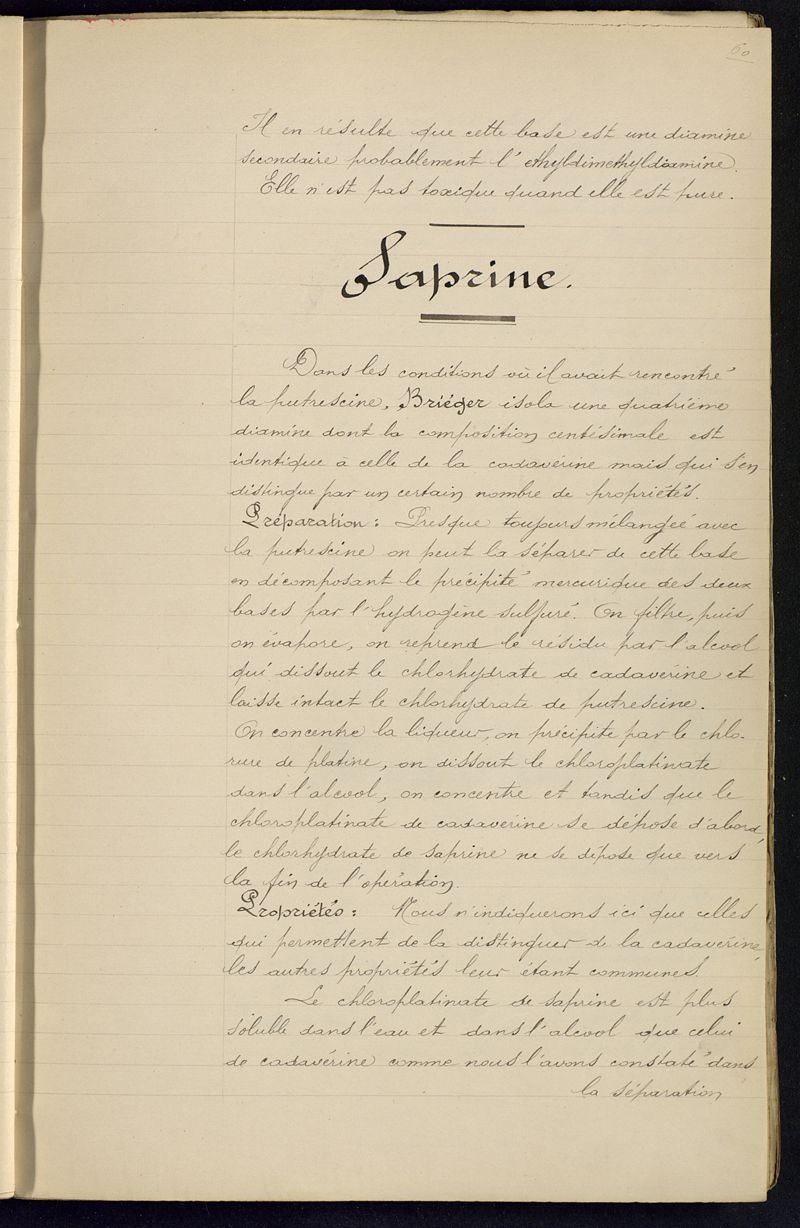 60
Il en résulte que cette base est une diamine
secondaire probablement l'éthyldimethyldiamine.
Elle n'est pas toxique quand elle est pure.
Saprine.
Dans les conditions où il avait rencontré
la putrescine, Briéger isola une quatrième
diamine dont la composition centésimale est
identique à celle de la cadavérine mais qui s'en
distingue par un certain nombre de propriétés.
Préparation: Presque toujours mélangée avec
la putrescine on peut la séparer de cette base
en décomposant le précipité mercurique des deux
bases par l'hydrogène sulfuré. On filtre, puis
on évapore, on reprend le résidu par l'alcool
qui dissout le chlorhydrate de cadavérine et
laisse intact le chlorhydrate de putrescine.
On concentre la liqueur, on précipite par le chlo-
rure de platine, on dissout le chloroplatinate
dans l'alcool, on concentre et tandis que le
chloroplatinate de cadavérine se dépose d'abord,
le chlorhydrate de saprine ne se dépose que vers
la fin de l'opération.
Propriétés: Nous n'indiquerons ici que celles
qui permettent de la distinguer de la cadavérine,
les autres propriétés leur étant communes.
Le chloroplatinate de saprine est plus
soluble dans l'eau et dans l'alcool que celui
de cadavérine comme nous l'avons constaté dans
la séparation